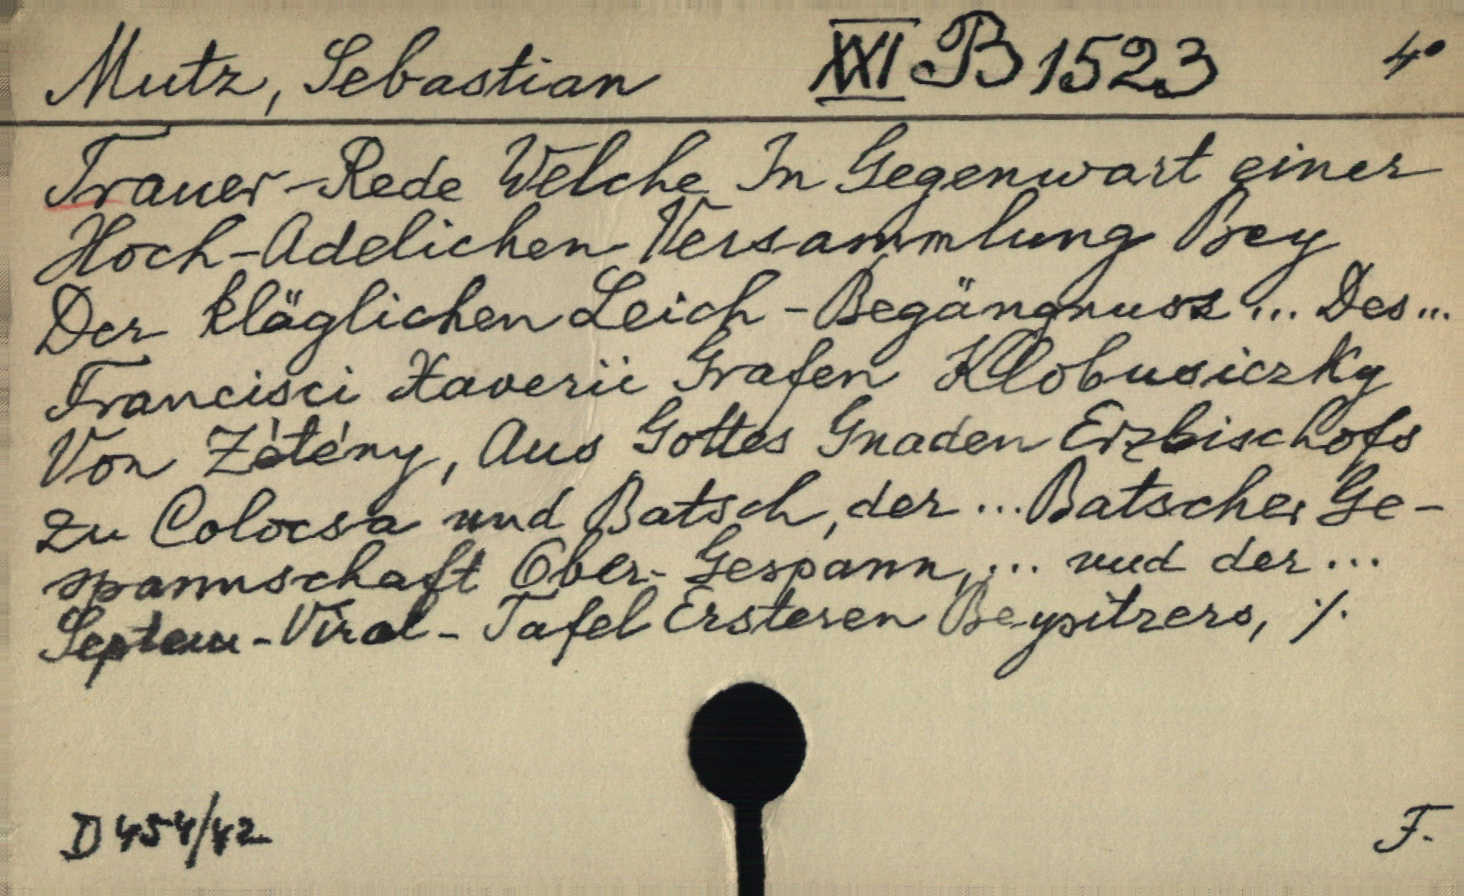 Mutz, Sebastian XXI B 1523 4°
Trauer-Rede Welche In Gegenwart einer
Hoch-Adelichen Versammlung Bey
Der kläglichen Leich-Begängnuss ... Des ...
Francisci Xaverii Grafen Klobusiczky
Von Zétény, Aus Gottes Gnaden Erzbischofs
zu Colocsa und Batsch, der ... Batscher Ge-
spannschaft Ober-Gespann, ... und der ...
Septem-Viral-Tafel Ersteren Beysitzers, ./.
D 454/42 F.